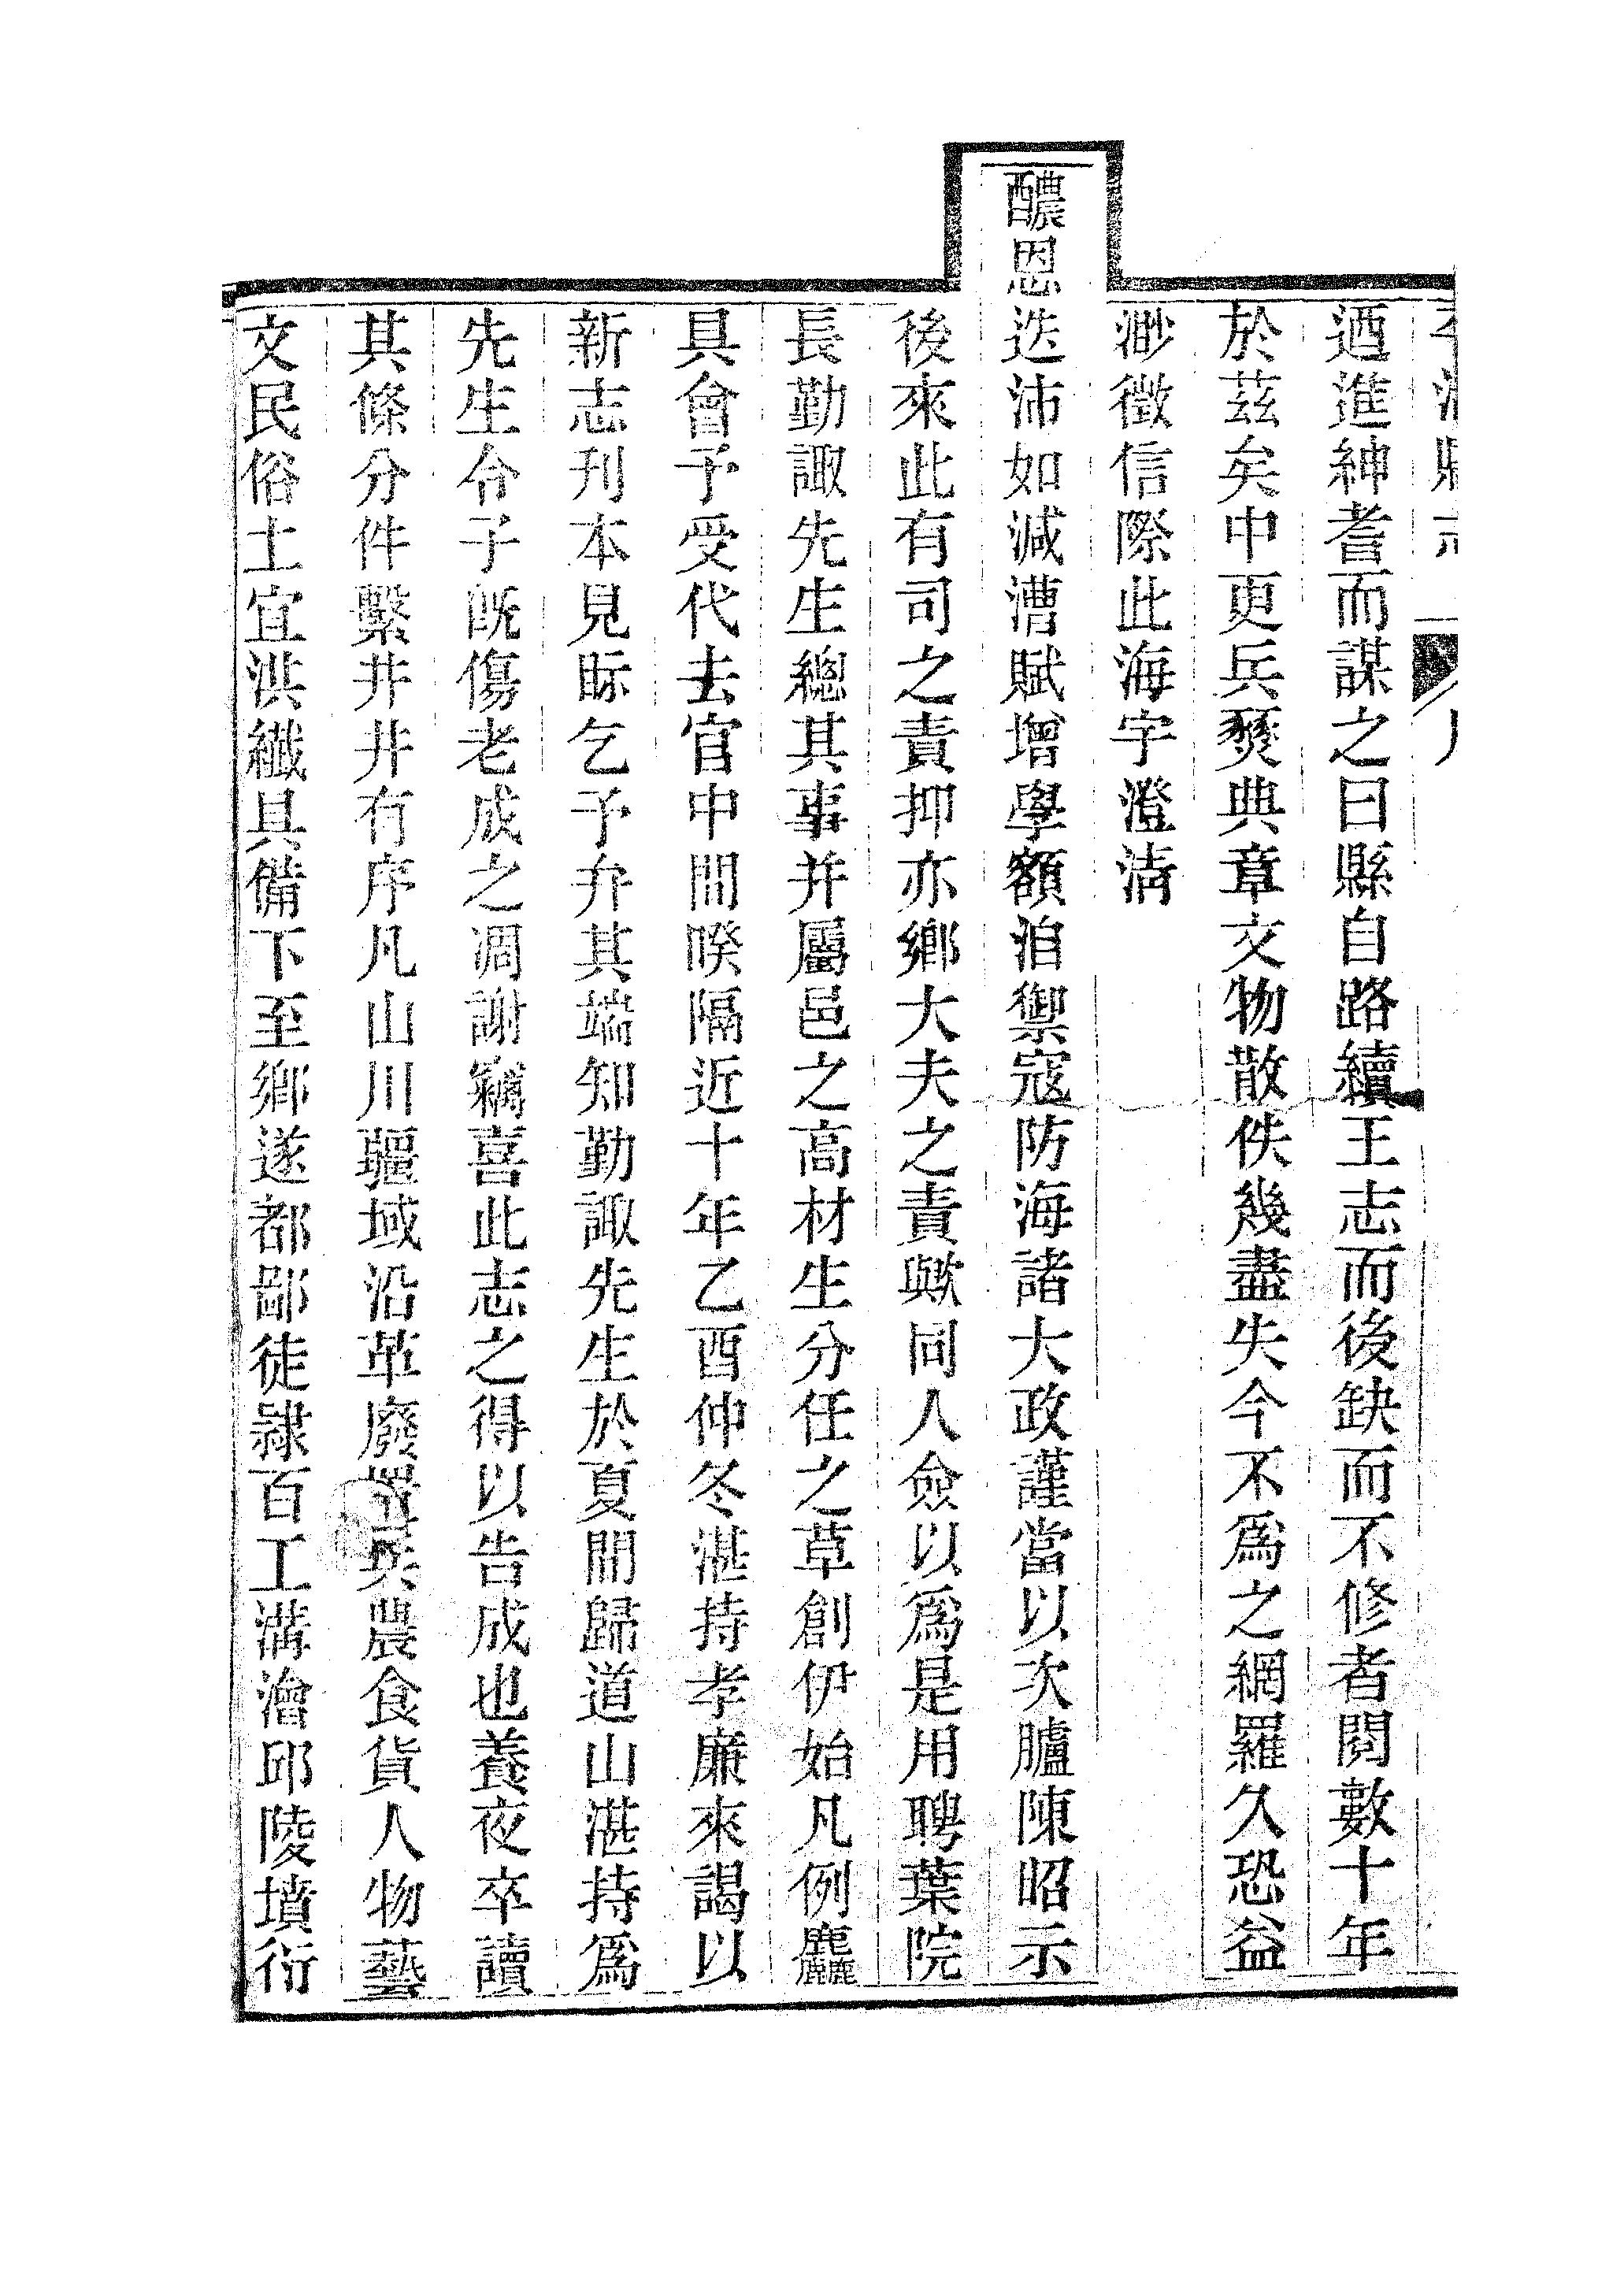 迺進紳耆而謀之曰縣自路續王志而後缺而不修者閱數十年
於茲矣中更兵燹典章文物散佚幾盡失今不爲之網羅久恐益
渺徵信際此海宇澄清
醲恩迭沛如減漕賦增學額洎禦寇防海諸大政謹當以次臚陳昭示
後來此有司之責抑亦鄉大夫之責歟同人僉以爲是用聘葉院
長勤諏先生總其事并屬邑之高材生分任之草創伊始凡例麤
具會予受代去官中間暌隔近十年乙酉仲冬湛持孝廉來謁以
新志刊本見眎乞予弁其端知勤諏先生於夏間歸道山湛持爲
先生令子既傷老成之凋謝竊喜此志之得以告成也養夜卒讀
其條分件繫井井有序凡山川疆域沿革廢置兵農食貨人物藝
文民俗土宜洪纖具備下至鄉遂都鄙徒隷百工溝澮邱陵墳衍